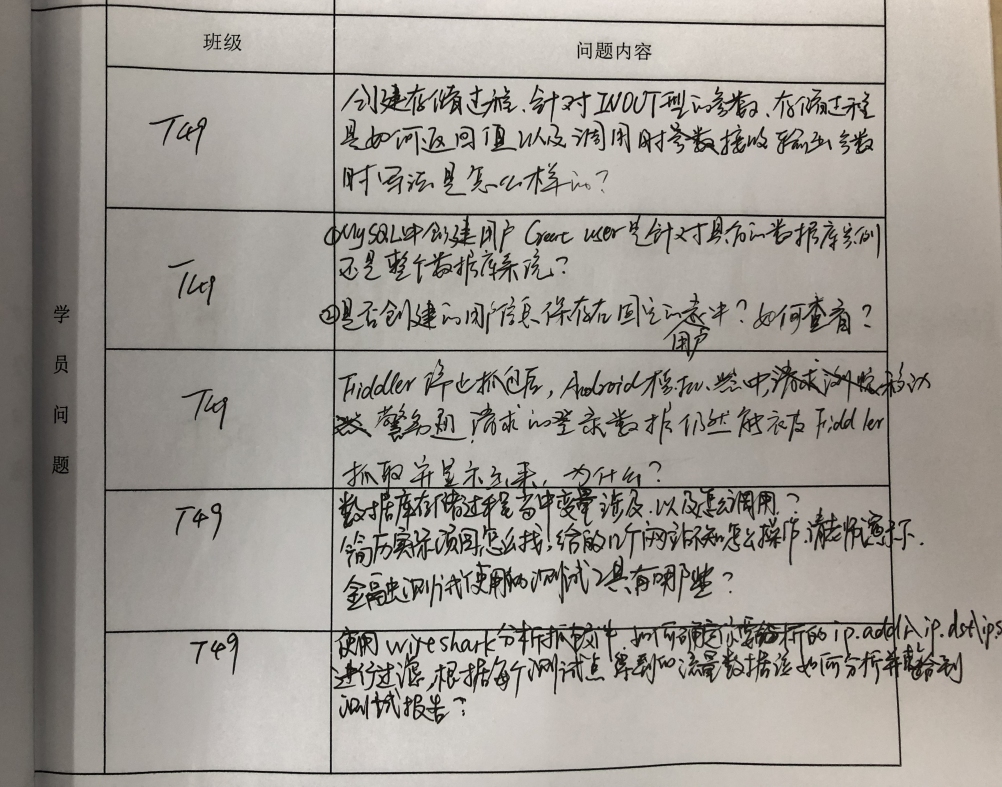 班级 问题内容
学员问题
T49
创建存储过程、针对INOUT型的参数、存储过程
是如何返回值以及调用时参数接收输出参数
时写法是怎么样的?
T49
①MySQL中创建用户 Creat user是针对具有的数据库实例
还是整个数据库系统?
②是否创建的用户信息保存在固定的表中?如何查看?
用户
T49
Fiddler停止抓包后,Android模拟器中,请求浏览移动
警务通 请求的登录数据仍然能被Fiddler
抓取并显示出来,为什么?
T49
数据库存储过程当中变量涉及以及怎么调用?
简历实际项目怎么找,给的几个网站不知怎么操作,请老师演示下.
金融测试使用的测试工具有哪些?
T49
使用wireshark分析抓 如何确定要分析的ip.addr、ip.dst、ip.s
进行过滤,根据每个测试点 得到的流量数据该如何分析并整合到
测试报告?